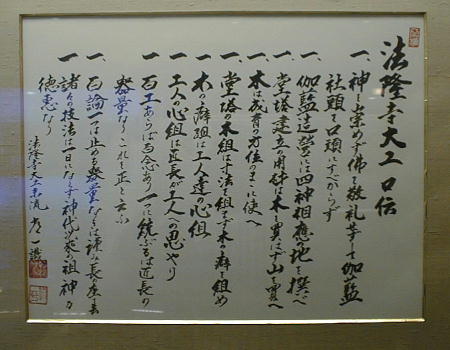 法隆寺大工 口伝
一、神を崇めず佛を敬礼せずして伽藍
社頭を口頭にすべからず
一、伽藍造営には四神相應の地を撰べ
一、堂塔建立の用材は木を買はず山を買へ
一、木は成育の方位のまゝに使へ
一、堂塔の木組は寸法で組まず木の癖で組め
一、木の癖組は工人達の心組
一、工人の心組は匠長が工人への思やり
一、百工あらば百念あり一つに統ぶるは匠長の
器量なり これを正と云ふ
一、百論一つに止める器量なきは謹み匠長の座を去れ
一、諸々の技法は一日にならず神代以来の祖神の
徳恵なり
法隆寺大工